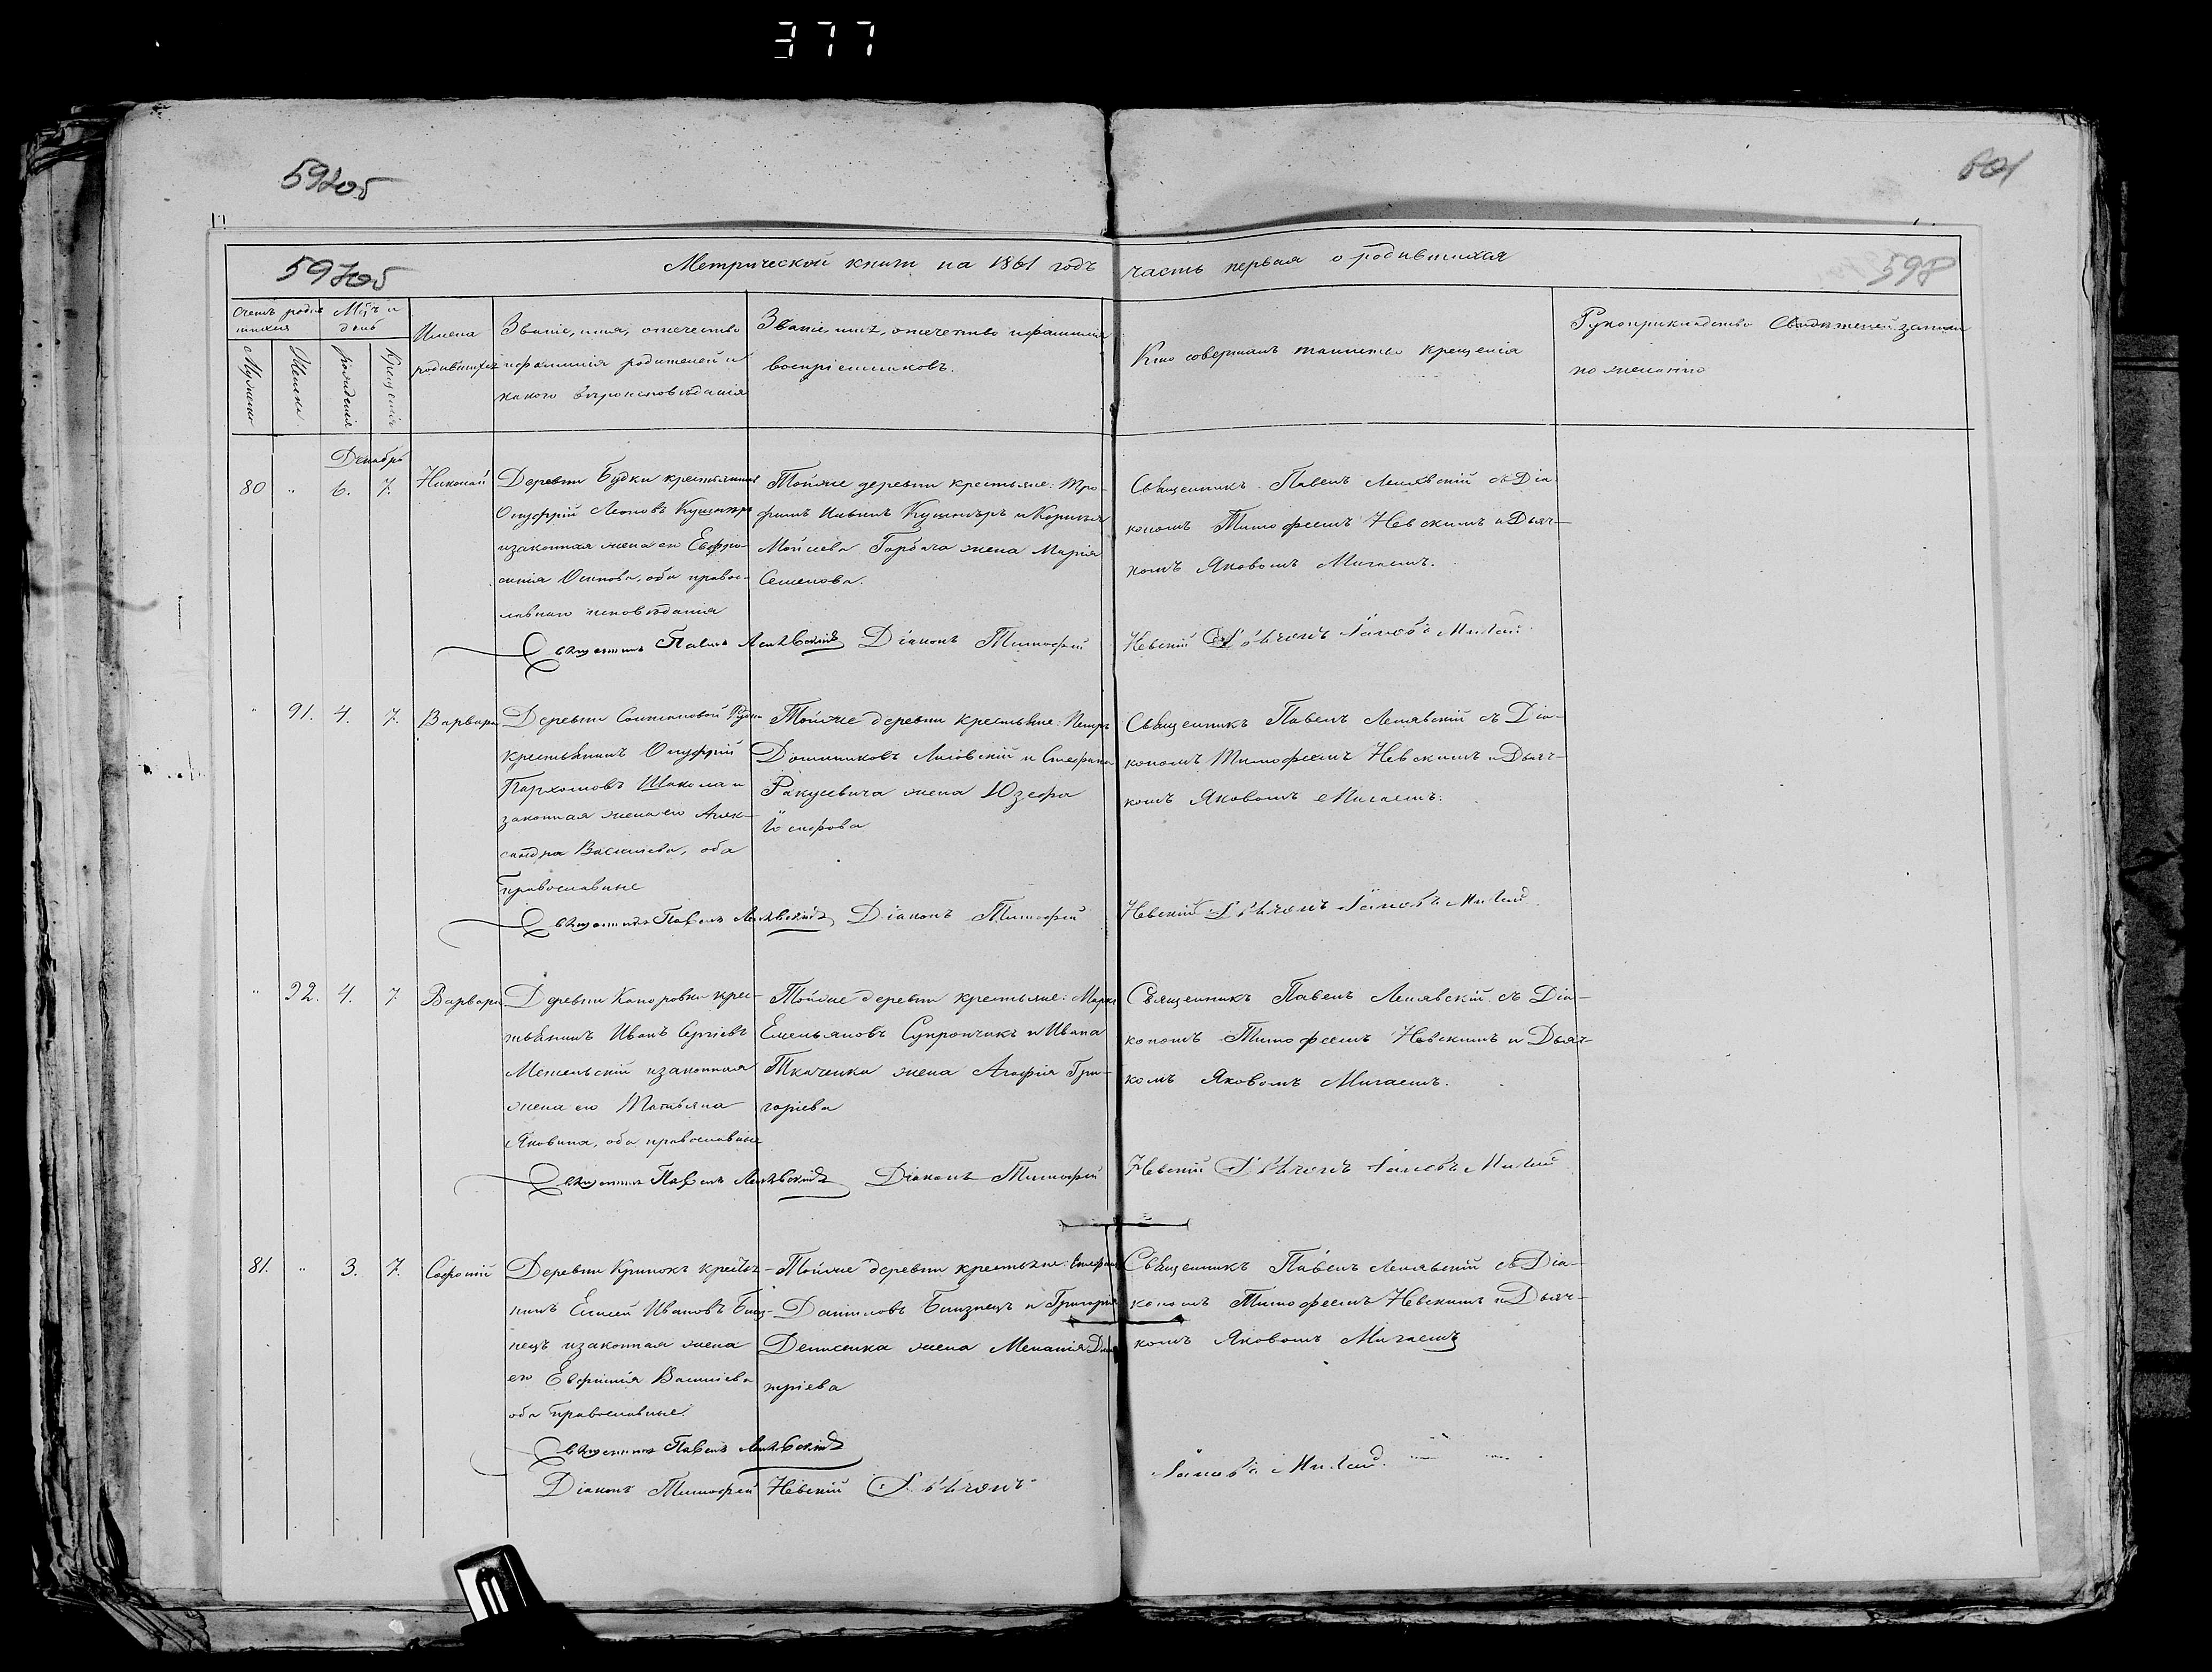 377
601
Метрической книги на 1861 годъ часть первая о родившихся
598
Мѣ̃ъ и
день
Имена
родившихся
Званіе, имя, отечество
и фамилія родителей и
какого вѣроисповѣданія
Званіе, имя, отечество и фамилія
воспріемниковъ.
Кто совершалъ таинство крещенія
Рукоприкладство свидѣтелей записи
по желанію
Мужеска
Женска
рожденія
Крещенія
Декабрь
80 " 6. 7. Николай
Деревни Будки крестьянинъ
Онуфрій Леоновъ
и законная жена его Евфро-
синія Осипова, оба правос-
лавнаго исповѣданія
Тойже деревни крестьяне: Тро-
фимъ и Корнилія
Моисѣева Горбача жена Марія
Семенова.
Священникъ Павелъ съ Діа-
кономъ Тимофеемъ Невскимъ и Дьяч-
комъ Яковомъ Мигаемъ.
Священникъ Павелъ Діаконъ Тимофей Невскій Дьячокъ Яковъ Мигай
" 91. 4. 7. Варвара
Деревни
крестьянинъ Онуфрій
Пархомовъ и
законная жена его Алек-
сандра Васильева, оба
православные
Тойже деревни крестьяне: Петръ
Доминиковъ Лисовскій и Стефана
жена Юзефа
Іосифова
Священникъ Павелъ съ Діа-
кономъ Тимофеемъ Невскимъ и Дьяч-
комъ Яковомъ Мигаемъ.
Священникъ Павелъ Діаконъ Тимофей Невскій Дьячокъ Яковъ Мигай
" 92. 4. 7 Варвара
Деревни Каноровки крес-
тьянинъ Иванъ Сергіевъ
и законная
жена его Татьяна
Яковина, оба православные
Тойже деревни крестьяне: Марко
Емельяновъ Супрончикъ и Ивана
Ткаченка жена Агафія Гри-
горіева
Священникъ Павелъ съ Діа-
кономъ Тимофеемъ Невскимъ и Дьяч-
комъ Яковомъ Мигаемъ.
Священникъ Павелъ Діаконъ Тимофей Невскій Дьячокъ Яковъ Мигай
81. " 3. 7. Софоній
Деревни Кринокъ крестья-
нинъ Елисей Ивановъ Близ-
нецъ и законная жена
его Евфимія Васильева
оба православные.
Тойже деревни крестьяне: Стефанъ
Даниловъ Близнецъ и Григорія
Денисенка жена Меланія Дми
тріева
Священникъ Павелъ съ Діа-
кономъ Тимофеемъ Невскимъ и Дьяч-
комъ Яковомъ Мигаемъ
Священникъ Павелъ
Діаконъ Тимофей Невскій Дьячокъ Яковъ Мигай.